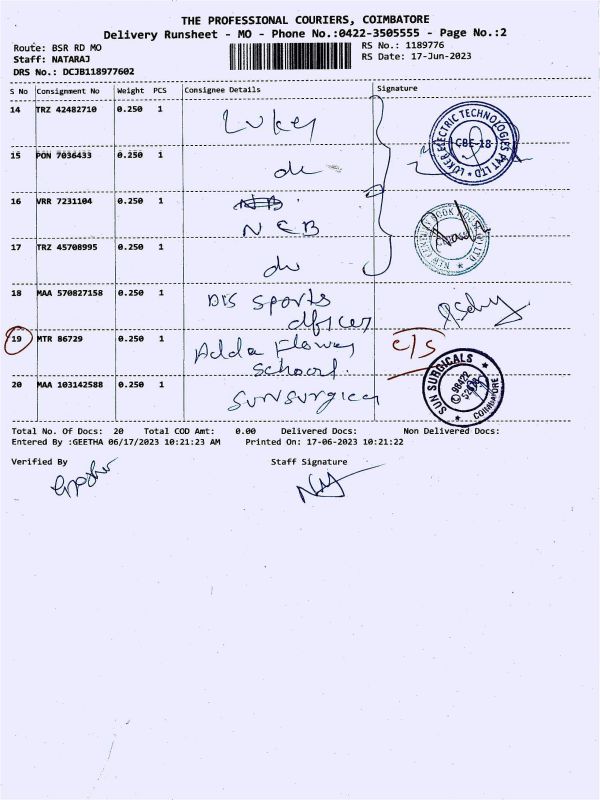 THE PROFESSIONAL COURIERS, COIMBATORE
Delivery Runsheet - MO - Phone No.:0422-3505555 - Page No.:2
Route: BSR RD MO
Staff: NATARAJ
DRS No.: DCJB118977602
RS No.: 1189776
RS Date: 17-Jun-2023
S No Consignment No Weight PCS Consignee Details Signature
14 TRZ 42482710 0.250 1 Luker
LUKER ELECTRIC TECHNOLOGIES PVT LTD
CBE-18
15 PON 7036433 0.250 1 do
16 VRR 7231104 0.250 1 NCB
17 TRZ 45708995 0.250 1 do
18 MAA 570827158 0.250 1 DIS Sports
officer
19 MTR 86729 0.250 1 Adda Flower
School.
c/s
20 MAA 103142588 0.250 1 Sunsurgical
SUN SURGICALS
COIMBATORE
98422
Total No. Of Docs: 20 Total COD Amt: 0.00 Delivered Docs: Non Delivered Docs:
Entered By :GEETHA 06/17/2023 10:21:23 AM Printed On: 17-06-2023 10:21:22
Verified By Staff Signature